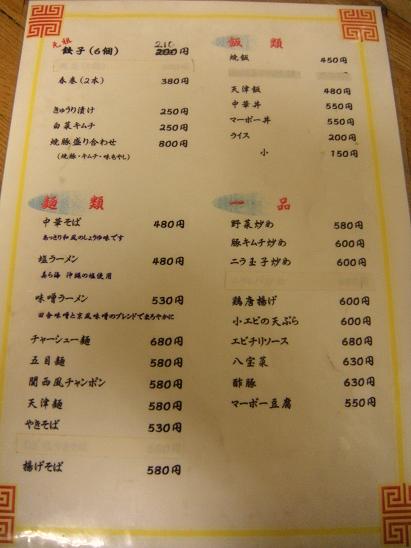 元祖
餃子(6個) 200円 210
春巻(2本) 380円
きゅうり漬け 250円
白菜キムチ 250円
焼豚盛り合わせ 800円
(焼豚・キムチ・味もやし)
麺類
中華そば 480円
あっさり和風のしょうゆ味です
塩ラーメン 480円
美ら海 沖縄の塩使用
味噌ラーメン 530円
田舎味噌と京風味噌のブレンドでまろやかに
チャーシュー麺 680円
五目麺 580円
関西風チャンポン 580円
天津麺 580円
やきそば 530円
揚げそば 580円
飯類
焼飯 450円
天津飯 480円
中華丼 550円
マーボー丼 550円
ライス 200円
小 150円
一品
野菜炒め 580円
豚キムチ炒め 600円
ニラ玉子炒め 600円
鶏唐揚げ 600円
小エビの天ぷら 600円
エビチリソース 680円
八宝菜 630円
酢豚 630円
マーボー豆腐 550円